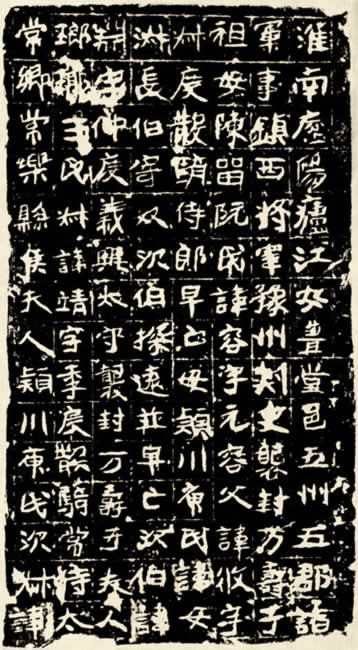 淮南歷陽廬江安豊堂邑五州五郡諸
軍事鎮西將軍豫州刺史襲封万壽子
祖母陳留阮氏諱容字元容父諱攸字
叔度散騎侍郎早亡母潁川庾氏諱女
淑長伯寄奴次伯探遠並早亡次伯諱
淵字仲度義興太守襲封万壽子夫人
瑯琊王氏叔諱靖字季度散騎常侍太
常卿常樂縣侯夫人潁川庾氏次叔諱